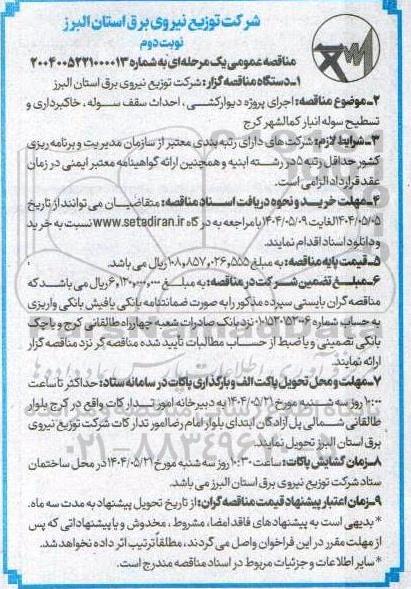 شرکت توزیع نیروی برق استان البرز
نوبت دوم
مناقصه عمومی یک مرحله‌ای به شماره ۲۰۰۴۰۰۵۲۲۱۰۰۰۰۱۳
۱ـ دستگاه مناقصه گزار: شرکت توزیع نیروی برق استان البرز
۲ـ موضوع مناقصه: اجرای پروژه دیوارکشی ، احداث سقف سوله ، خاکبرداری و
تسطیح سوله انبار کمالشهر کرج
۳ـ شرایط لازم: شرکت های دارای رتبه بندی معتبر از سازمان مدیریت و برنامه ریزی
کشور حداقل رتبه ۵ در رشته ابنیه و همچنین ارائه گواهینامه معتبر ایمنی در زمان
عقد قرارداد الزامی است.
۴ـ مهلت خرید و نحوه دریافت اسناد مناقصه: متقاضیان می توانند از تاریخ
۱۴۰۴/۰۵/۰۵ لغایت ۱۴۰۴/۰۵/۰۹ با مراجعه به درگاه www.setadiran.ir نسبت به خرید
و دانلود اسناد اقدام نمایند.
۵ـ قیمت پایه مناقصه: به مبلغ ۱۰۸,۸۵۷,۰۲۶,۵۵۵ ریال می باشد.
۶ـ مبلغ تضمین شرکت در مناقصه: به مبلغ ۶,۱۳۰,۰۰۰,۰۰۰ ریال می باشد که
مناقصه گران بایستی سپرده مذکور را به صورت ضمانتنامه بانکی یا فیش بانکی واریزی
به حساب شماره نزد بانک صادرات شعبه چهارراه طالقانی کرج و یا چک
بانکی تضمینی و یا ضبط از حساب مطالبات تأیید شده مناقصه گر نزد مناقصه گزار
ارائه نمایند.
۷ـ مهلت و محل تحویل پاکت الف و بارگذاری پاکات در سامانه ستاد: حداکثر تا ساعت
۱۰:۰۰ روز سه شنبه مورخ ۱۴۰۴/۰۵/۲۱ به دبیرخانه امور تدارکات واقع در کرج بلوار
طالقانی شمالی پل آزادگان ابتدای بلوار امام رضا امور تدارکات شرکت توزیع نیروی
برق استان البرز تحویل نمایند.
۸ـ زمان گشایش پاکات: ساعت ۱۰:۳۰ روز سه شنبه مورخ ۱۴۰۴/۰۵/۲۱ در محل ساختمان
ستاد شرکت توزیع نیروی برق استان البرز می باشد.
۹ـ زمان اعتبار پیشنهاد قیمت مناقصه گران: از تاریخ تحویل پیشنهاد به مدت سه ماه.
* بدیهی است به پیشنهاد های فاقد امضا، مشروط ، مخدوش و یا پیشنهاداتی که پس
از مهلت مقرر در این فراخوان واصل می گردند، مطلقاً ترتیب اثر داده نخواهد شد.
* سایر اطلاعات و جزئیات مربوط در اسناد مناقصه مندرج است.